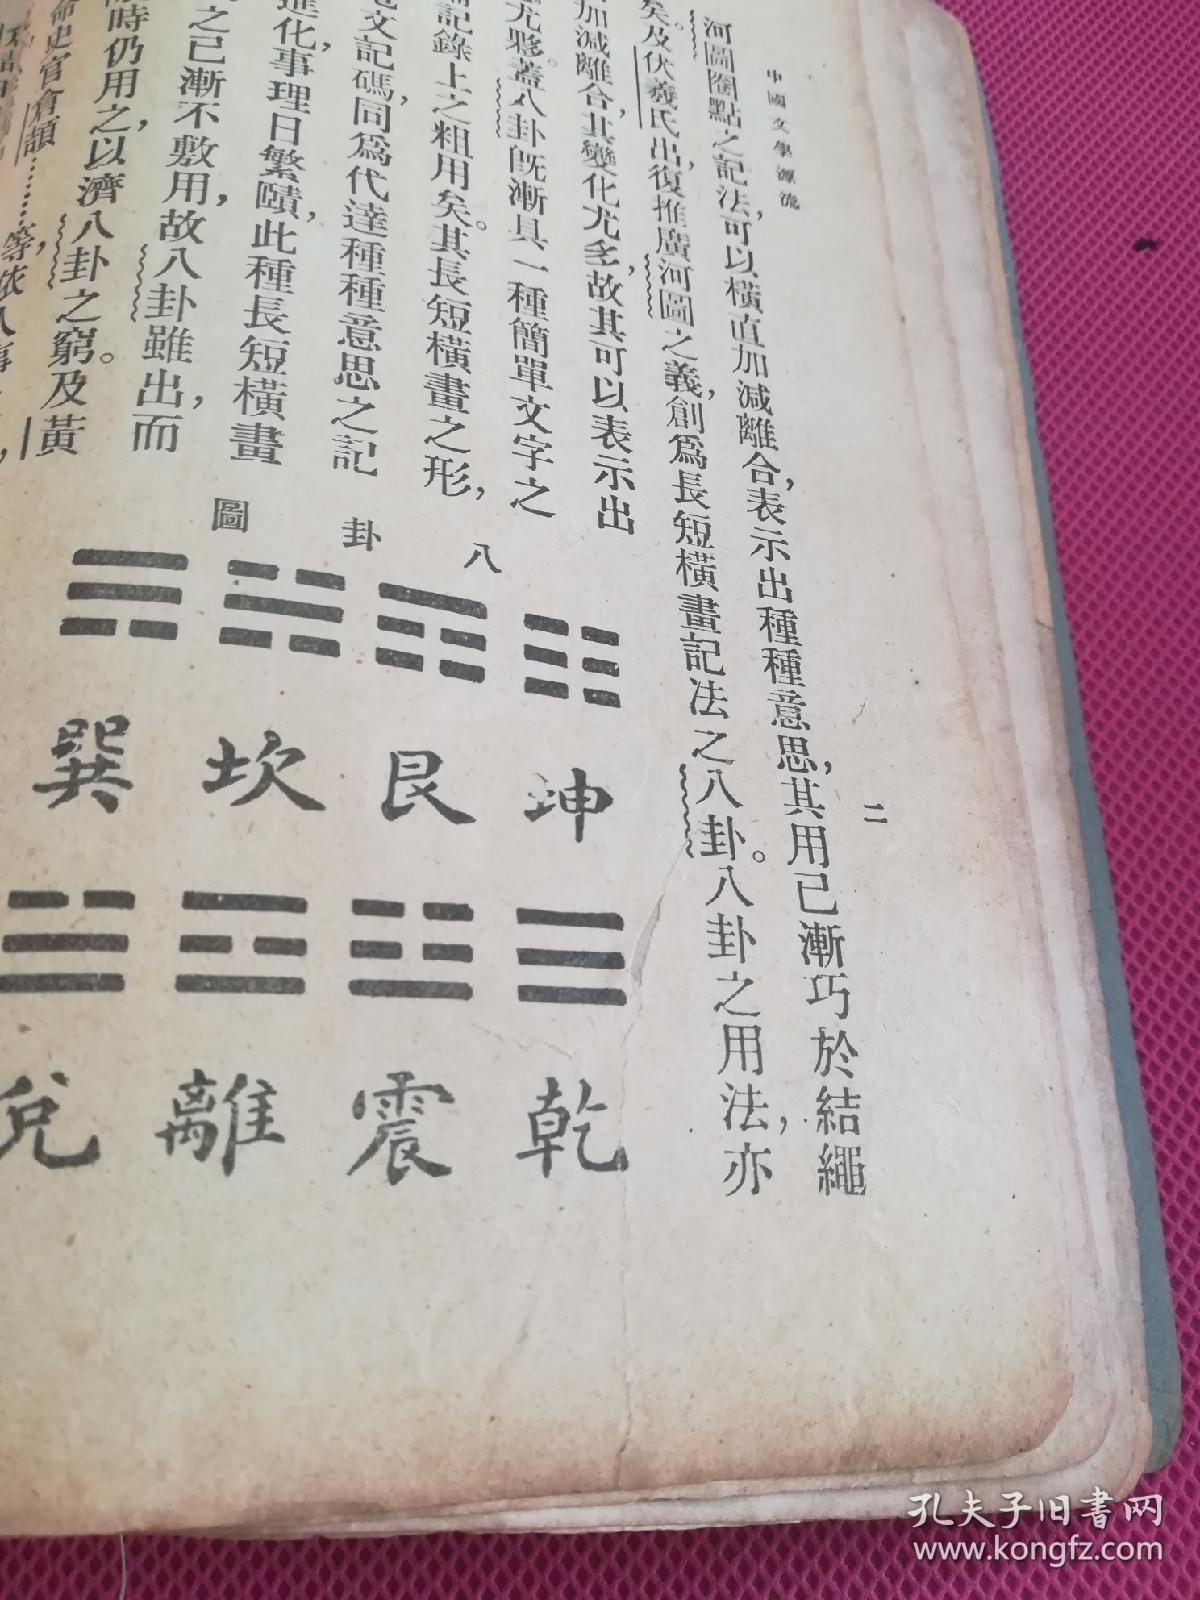 中國文學源流
二
河圖圈點之記法,可以橫直加減離合,表示出種種意思,其用已漸巧於結繩
矣。及伏羲氏出,復推廣河圖之義,創爲長短橫畫記法之八卦。八卦之用法,亦
加減離合,其變化尤多,故其可以表示出
尤夥。蓋八卦旣漸具一種簡單文字之
記錄上之粗用矣。其長短橫畫之形,
文記碼,同爲代達種種意思之記
進化,事理日繁賾,此種長短橫畫
之已漸不敷用,故八卦雖出,而
時仍用之,以濟八卦之窮。及黃
命史官倉頡……等,依
八卦圖
坤 艮 坎 巽
乾 震 離 兌
孔夫子旧书网
www.kongfz.com